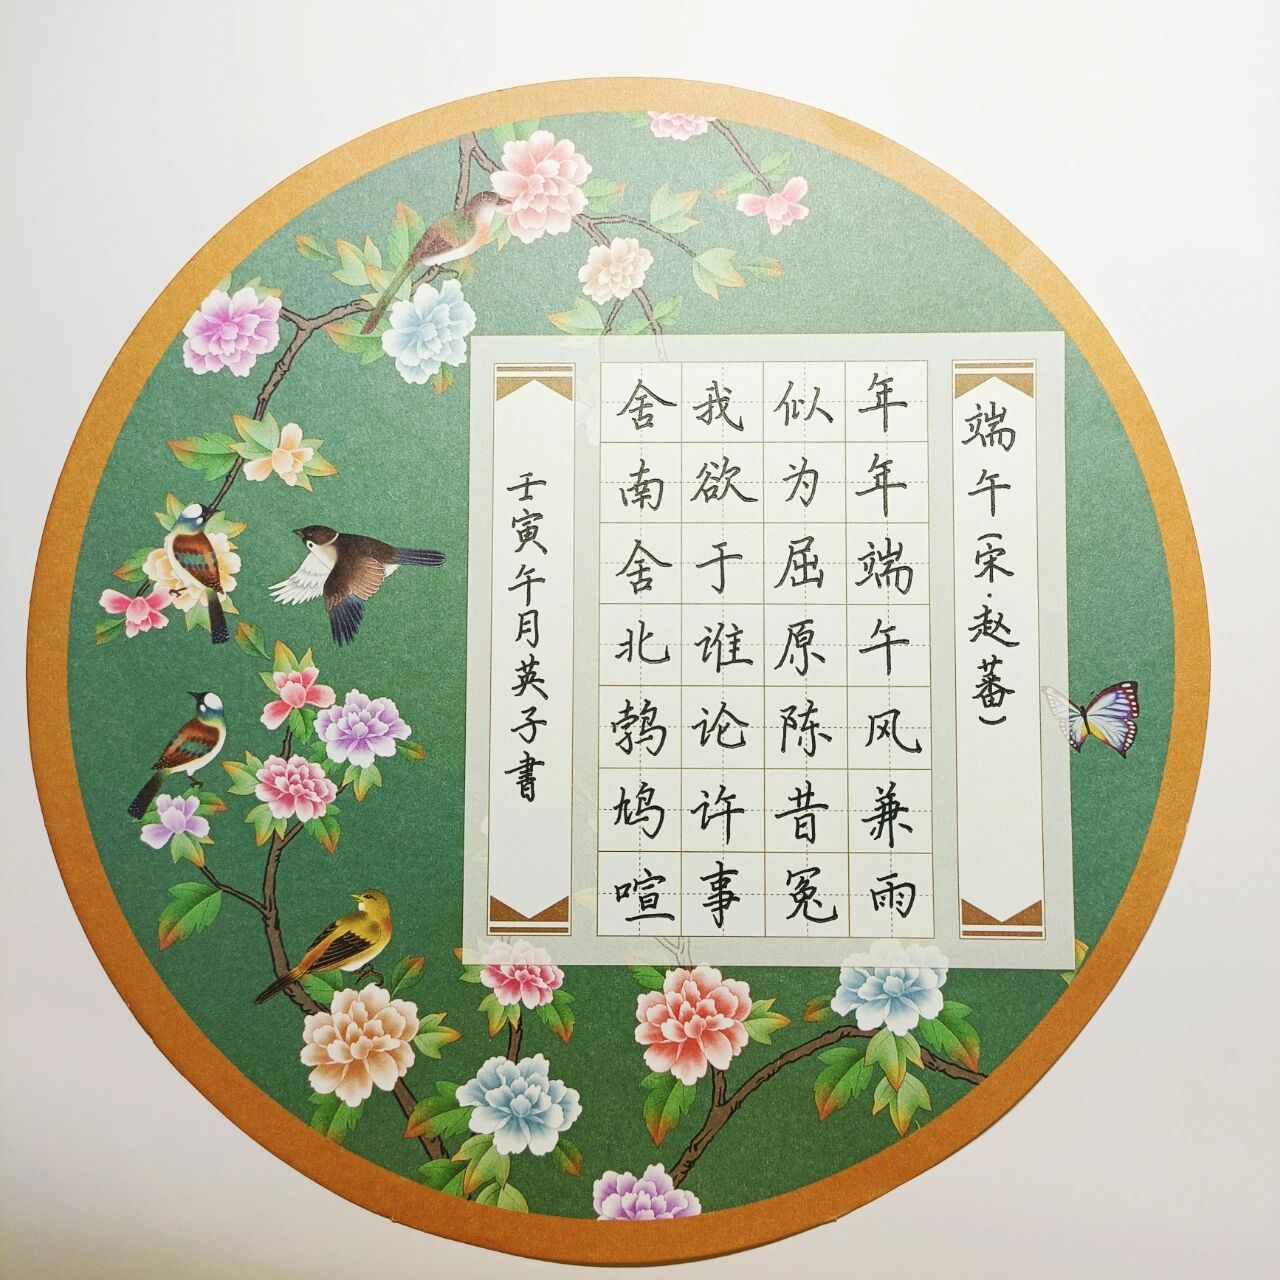 端午(宋·赵蕃)
年年端午风兼雨
似为屈原陈昔冤
我欲于谁论许事
舍南舍北鹁鸠喧
壬寅午月英子書